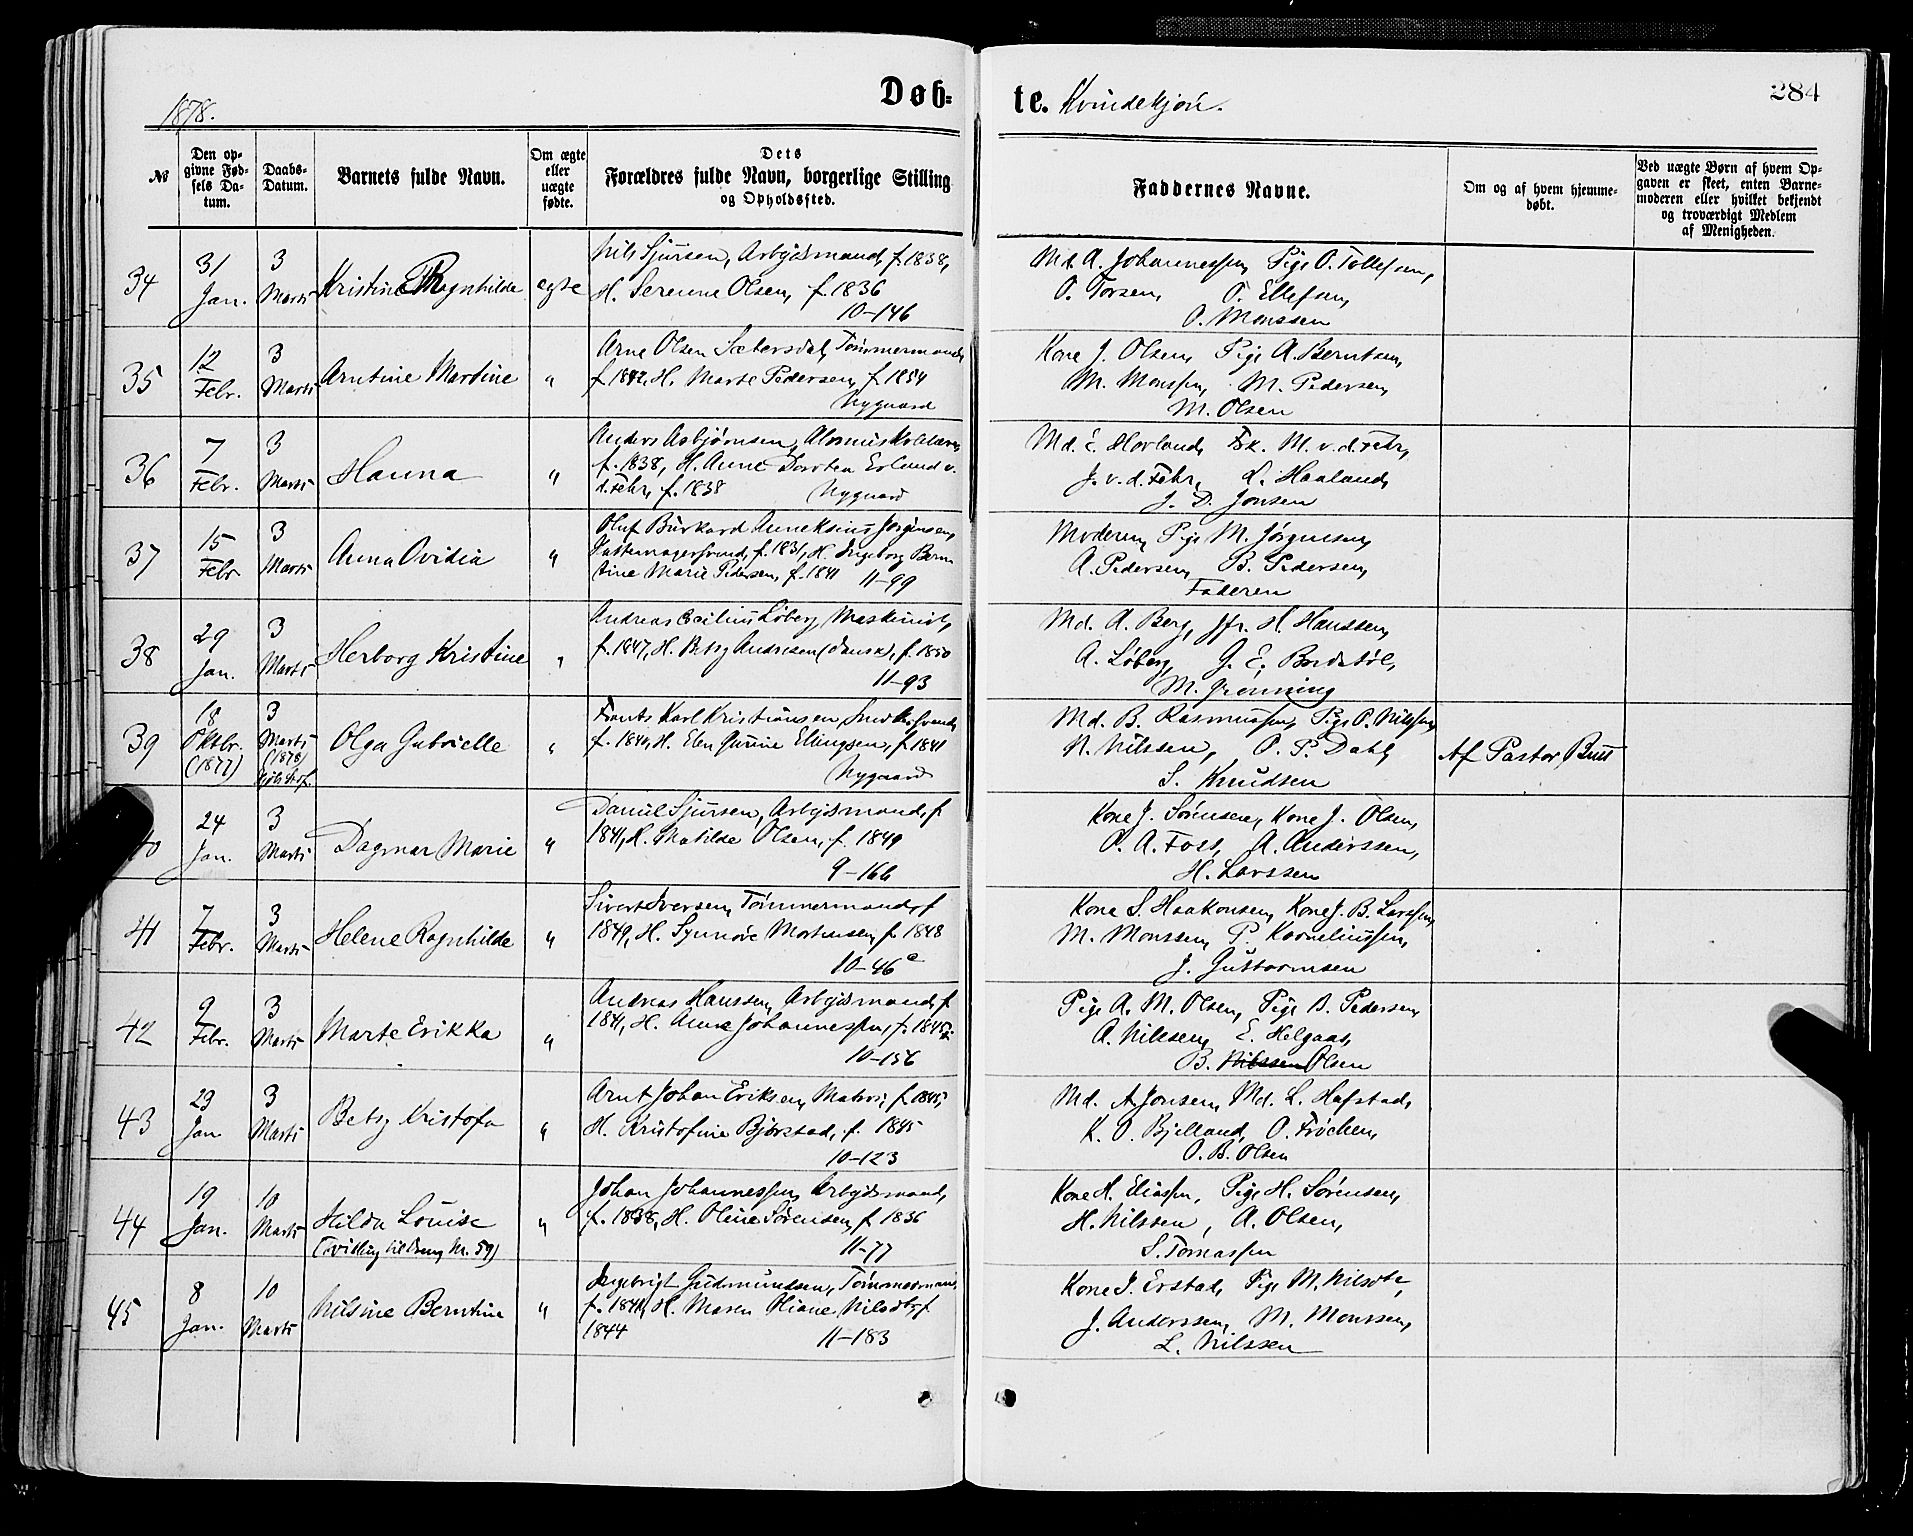 1878.
Døb-
te. Kvindekjøn.
284
№
Den op-
givne Fød-
sels Da-
tum.
Daabs-
Datum.
Barnets fulde Navn.
Om ægte
eller
uægte
fødte.
Dets
Forældres fulde Navn, borgerlige Stilling
og Opholdssted.
Faddernes Navne.
Om og af hvem hjemme-
døbt.
Ved uægte Børn af hvem Op-
gaven er skeet, enten Barne-
moderen eller hvilket bekjendt
og troværdigt Medlem
af Menigheden.
34
31
Jan.
3
Marts
Kristine Ragnhilde
egte
Nils Sjursen, Arbejdsmand, f. 1838,
H. Serenne Olsen, f. 1836
10-146
Md. A. Johannessen, Pige O. Tollefsen,
O. Torsen, T. Ellefsen,
O. Monssen
35
12
Febr.
3
Marts
Arntine Martine
"
Arne Olsen Sætersdal, Tømmermand,
f. 1842, H. Marte Pedersen, f. 1854
Nygaard
Kone J. Olsen, Pige A. Berntsen,
M. Monssen, M. Pedersen,
M. Olsen
36
7
Febr.
3
Marts
Hanna
"
Anders Asbjørnsen,
f. 1838, H. Anne Dortea Erlund v.
d. Fehr, f. 1838 Nygaard
Md. E. Hovland, Frk. M. v. d. Fehr,
J. v. d. Fehr, L. Haaland,
J. D. Jonsen
37
15
Febr
3
Marts
Anna Ovidia
"
Oluf Burkard Jørgensen,
f. 1831, H. Ingeborg Bern
tine Marie Pedersen, f. 1841 11-99
Moderen, Pige M. Jørgensen,
A. Pedersen, B. Pedersen,
Faderen
38
29
Jan.
3
Marts
Herborg Kristine
"
Andreas Løberg, Maskinist,
f. 1847, H. Betsy Andresen (dansk), f. 1850
11-93
Md. A. Berg, Jfr. H. Hanssen,
A. Løberg, G. E. Bordstøl,
M. Grønning
39
18
Oktbr.
(1877)
3
Marts
(1878)
Olga Gabrielle
"
Frants Karl Kristiansen, Snedkersvend,
f. 1846, H. Elen Gurine Ellingsen, f. 1841
Nygaard
Md. B. Rasmussen, Pige P. Nilssen,
N. Nilssen, O. P. Dahl,
S. Knudsen
Af Pastor Bull
24
Jan.
3
Marts
Dagmar Marie
"
Daniel Sjursen, Arbejdsmand, f
1841, H. Matilde Olsen, f. 1849
9-166
Kone J. Sørensen, Kone J. Olsen,
O. A. Foss, A. Anderssen,
H. Larssen
41
7
Febr.
3
Marts
Helene Ragnhilde
"
Sivert Iversen, Tømmermand, f
1849, H. Synnøve Mortensen, f. 1848
10-46a
Kone S. Haakonsen, Kone J. B. Larssen,
M. Monssen, P. Korneliussen,
J. Guttormsen
42
9
Febr.
3
Marts
Marte Erikka
"
Andreas Hanssen, Arbejdsmand, f
1841, H. Anne Johannessen, f. 1845
10-156
Pige A. M. Olsen, Pige B. Pedersen,
A. Nilssen, E. Helgaas,
B. Nilssen Olsen
43
23
Jan
3
Marts
Betsy Kristofa
"
Arnt Johan Eriksen, Matros, f. 1845,
H. Kristofine Bjørstad, f. 1845
10-123
Md. A Jonsen, Md. L. Hafstad,
K. O. Bjelland, O. Frøchen,
O. B. Olsen
44
19
Jan.
10
Marts
Hilda Louise
(Tvilling til Dreng Nr. 59)
"
Johan Johannessen, Arbejdsmand,
f. 1838, H. Oline Sørensen, f 1836
11-77
Kone H. Eliassen, Pige H. Sørensen,
H. Nilssen, A. Olsen,
S. Tomassen
45
8
Jan.
10
Marts
Nilsine Berntine
"
Ingebrigt Gudmundsen, Tømmermand,
f. 1841, H. Maren Oliane Nilsdtr, f
1844 11-183
Kone J. Erstad, Pige M. Nilsdtr,
J. Anderssen, M. Monssen,
L. Nilssen